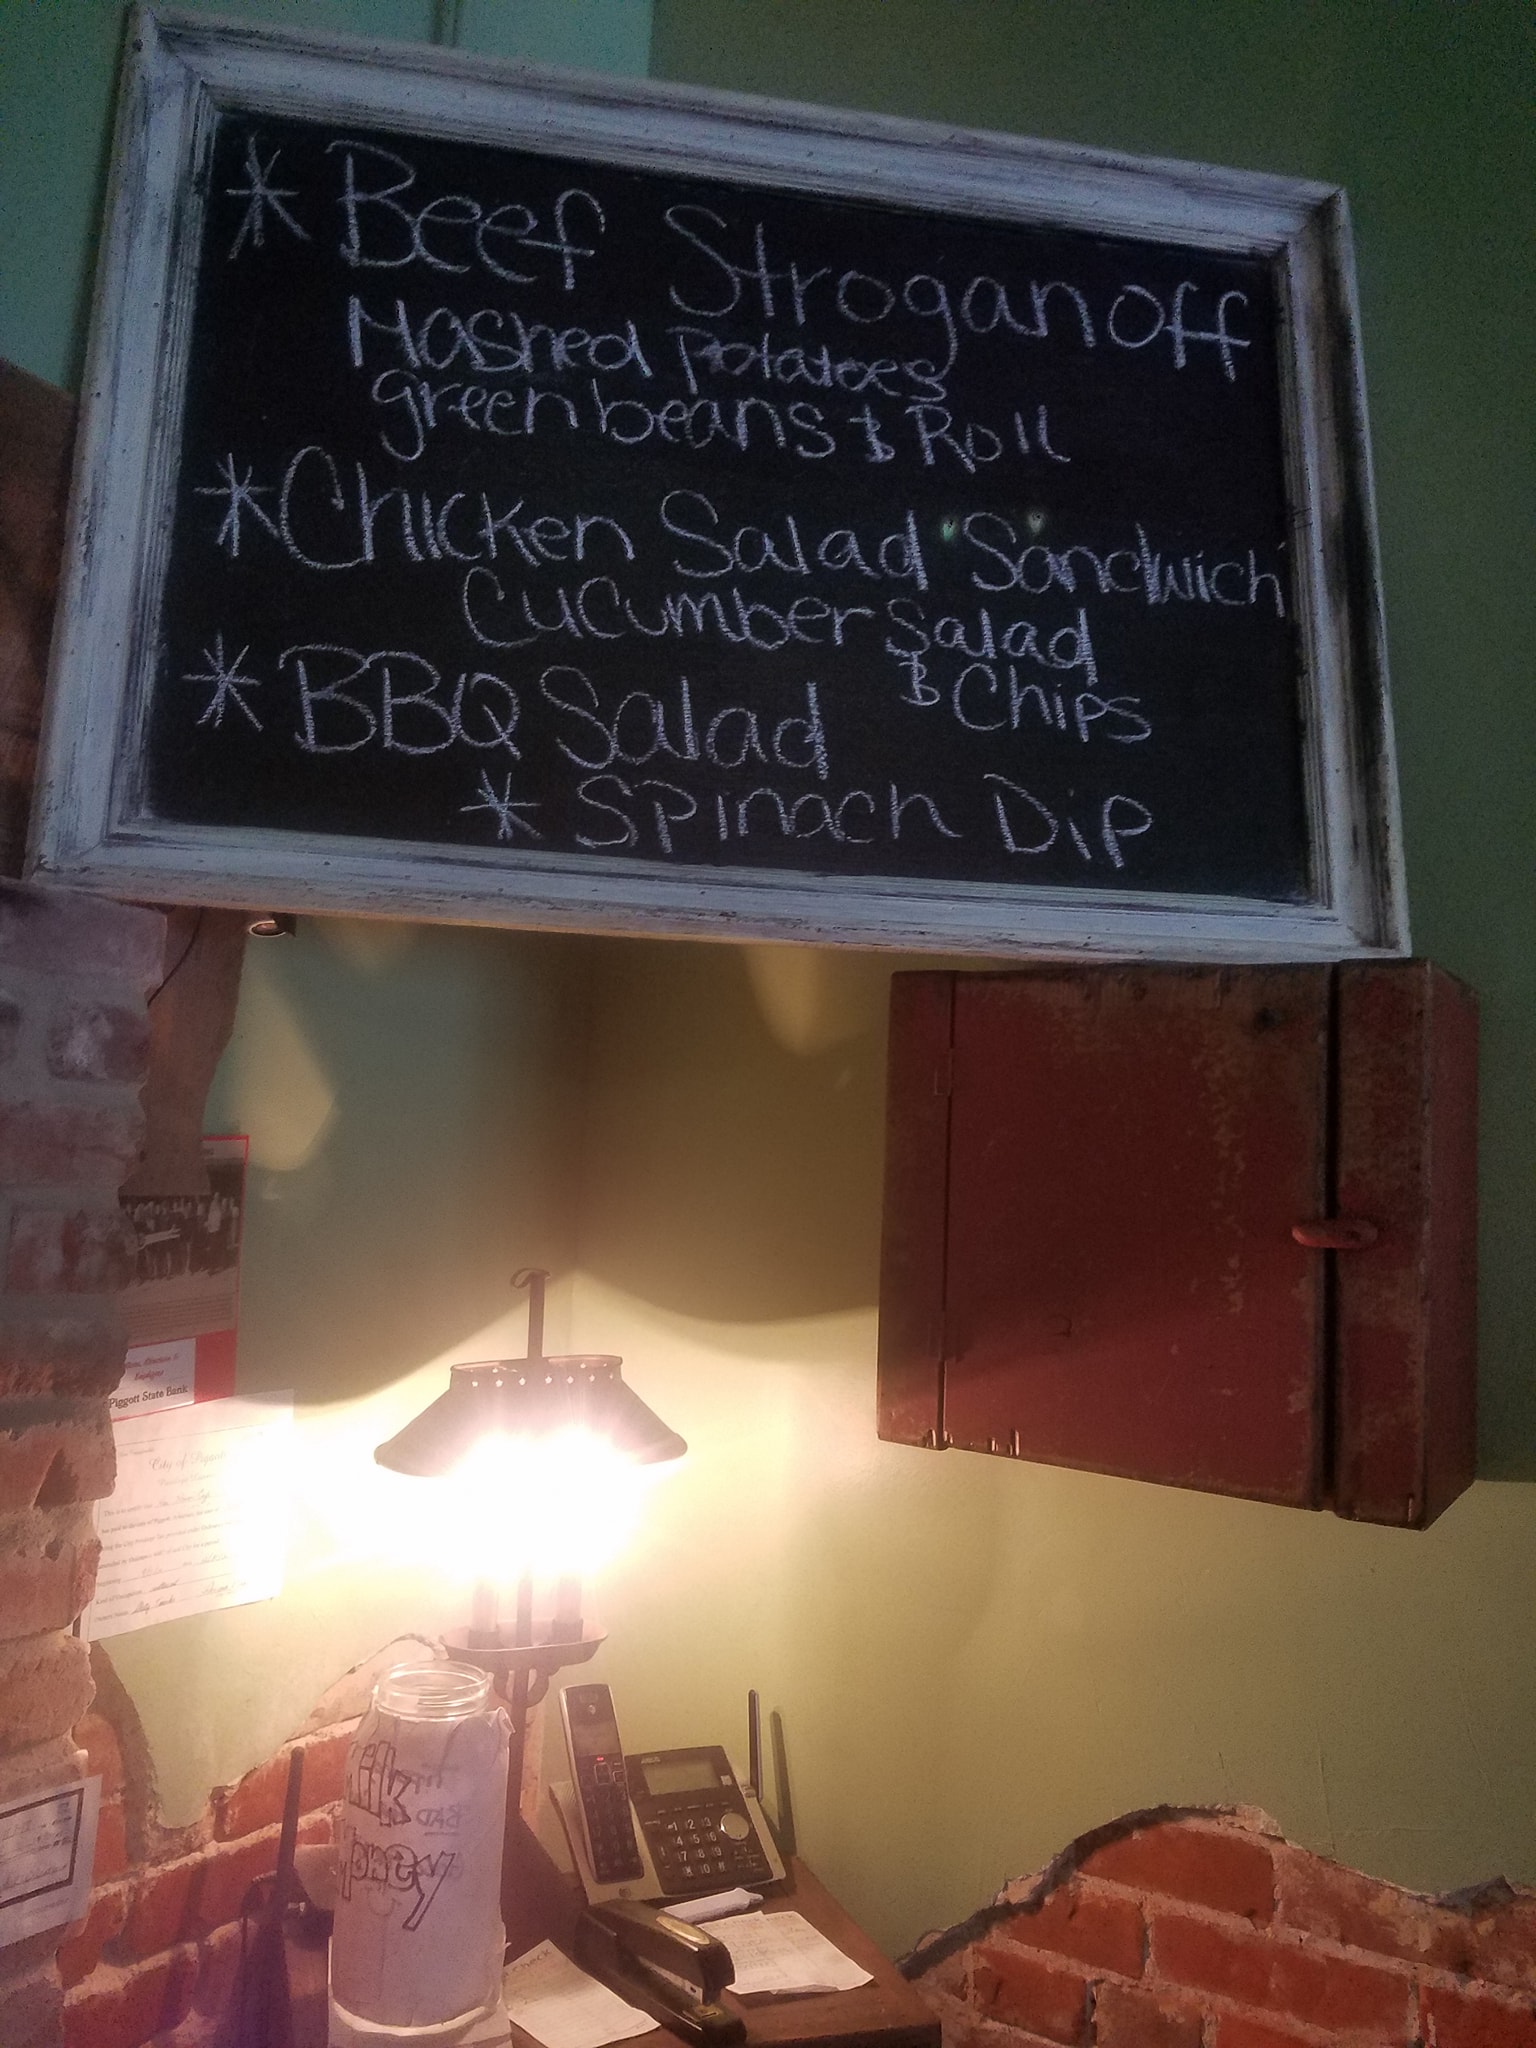 * Beef Stroganoff
Mashed Potatoes
green beans & Roll
* Chicken Salad Sandwich
Cucumber Salad
& Chips
* BBQ Salad
* Spinach Dip
Piggott State Bank
City of Piggott
Milk
Money
BAD